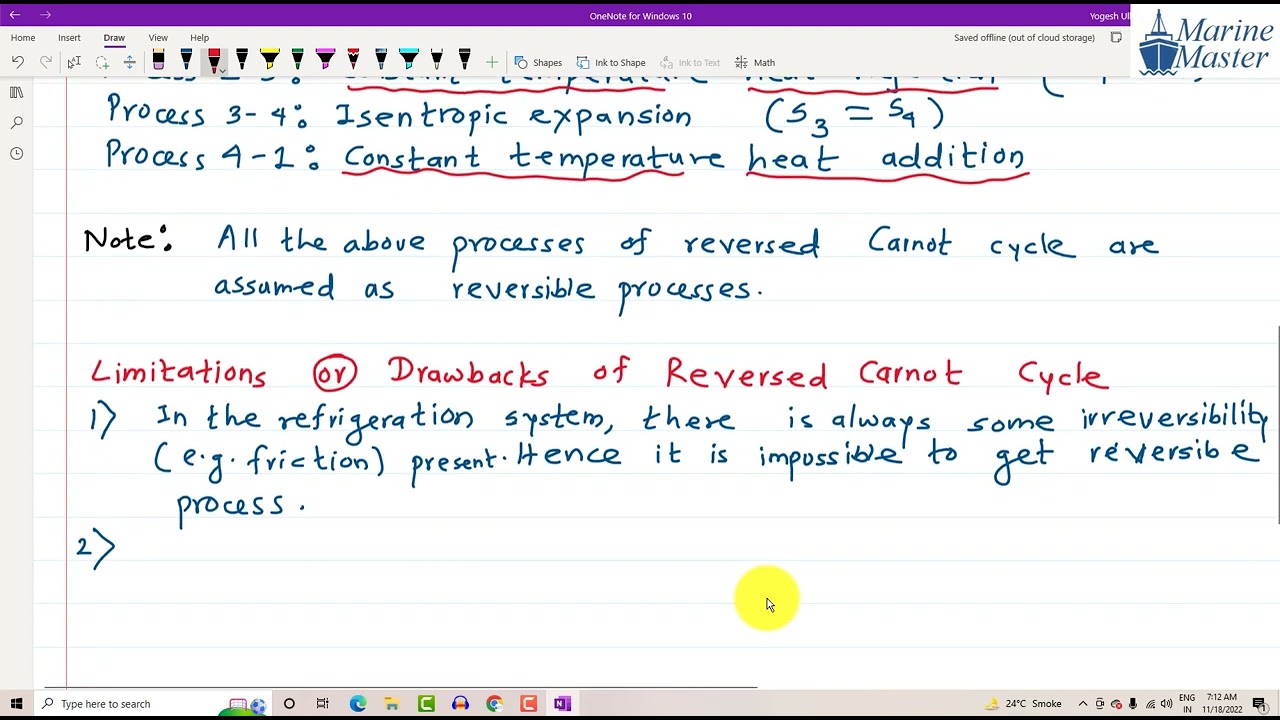 OneNote for Windows 10
Yogesh Ul
Home Insert Draw View Help
Saved offline (out of cloud storage)
Marine
Master
Shapes Ink to Shape Ink to Text Math
Constant temperature heat
Process 3-4: Isentropic expansion (S3 = S4)
Process 4-1: Constant temperature heat addition
Note: All the above processes of reversed Carnot cycle are
assumed as reversible processes.
Limitations or Drawbacks of Reversed Carnot Cycle
1) In the refrigeration system, there is always some irreversibility
(e.g. friction) present. Hence it is impossible to get reversible
process.
2)
Type here to search
24°C Smoke
ENG
IN
7:12 AM
11/18/2022